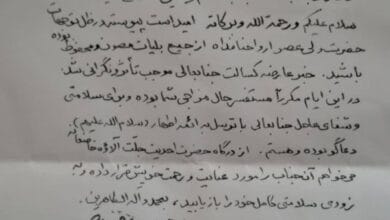 سلام علیکم و رحمة الله و برکاته امید است پیوسته در ظل توجهات
حضرت ولی عصر ارواحنا فداه از جمیع بلیات مصون و محفوظ بوده
باشید. خبر عارضه کسالت جنابعالی موجب تأثر و نگرانی شد
در این ایام مکرراً مستفسر حال مزاجی شما بوده و برای سلامتی
و شفای عاجل جنابعالی با توسل به ائمه اطهار (سلام الله علیهم)
دعاگو بوده و هستم. از درگاه حضرت احدیت جلّت آلاؤه خاضعانه
می‌خواهم آن جناب را مورد عنایت و رحمت خویش قرار داده و به
زودی سلامتی کامل خود را بازیابید، بمحمد و آله الطاهرین.